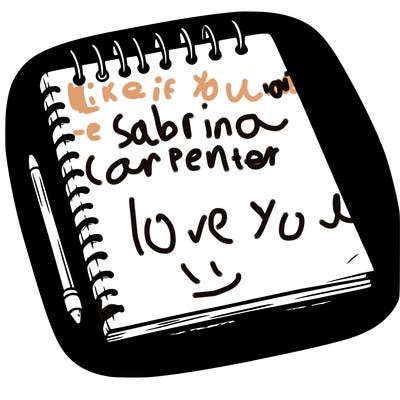 Like if you lov
-e Sabrina
Carpenter
love you